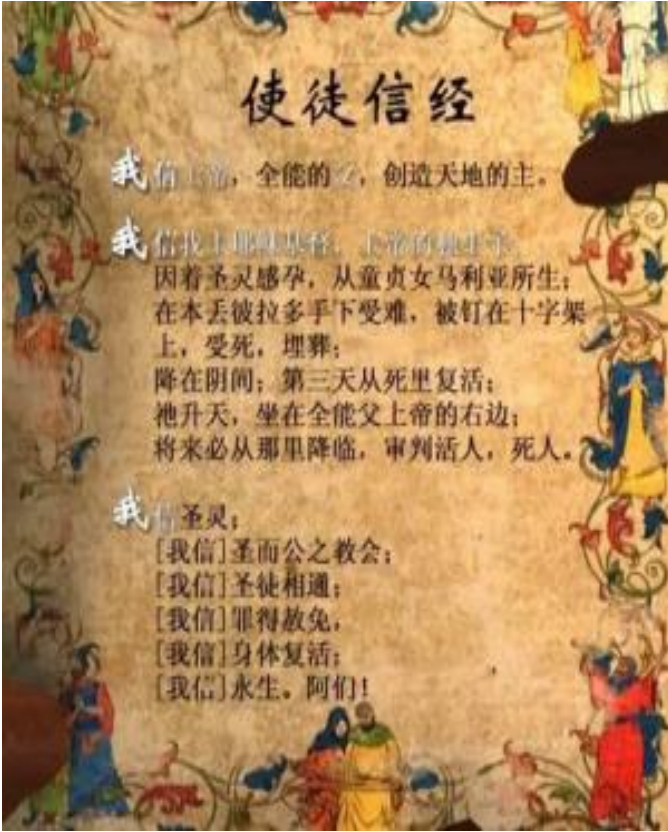 使徒信经
我信上帝，全能的父，创造天地的主。
我信我主耶稣基督，上帝的独生子；
因着圣灵感孕，从童贞女马利亚所生；
在本丢彼拉多手下受难，被钉在十字架
上，受死，埋葬；
降在阴间；第三天从死里复活；
祂升天，坐在全能父上帝的右边；
将来必从那里降临，审判活人，死人。
我信圣灵；
[我信]圣而公之教会；
[我信]圣徒相通；
[我信]罪得赦免，
[我信]身体复活；
[我信]永生。阿们！